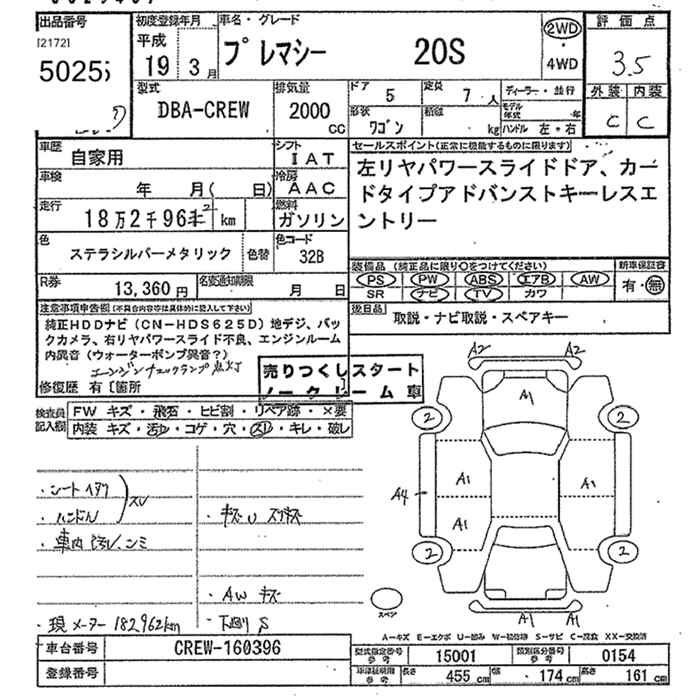 出品番号
[2172]
初度登録年月
平成
19 年 3 月
車名・グレード
プレマシー 20S
2WD
・
4WD
評価点
3.5
外装 内装
C C
型式
DBA-CREW
排気量
2000
cc
ドア 5
定員 7 人
形状 ワゴン
積載 kg
ディーラー・並行
モデル年式 年
ハンドル 左・右
車歴 自家用
シフト IAT
車検 年 月( 日)
冷房 AAC
走行 18万2千96 km
燃料 ガソリン
色 ステラシルバーメタリック
色替
色コード 32B
R券 13,360円
名変通知期限 月 日
セールスポイント(正常に機能するものに限ります)
左リヤパワースライドドア、カー
ドタイプアドバンストキーレスエ
ントリー
装備品 (純正品に限り○をつけてください)
PS PW ABS エアB AW
SR ナビ TV カワ
新車保証書
有・無
後日品 取説・ナビ取説・スペアキー
注意事項申告欄(不具合内容等は具体的に記入して下さい)
純正HDDナビ(CN-HDS625D)地デジ、バッ
クカメラ、右リヤパワースライド不良、エンジンルーム
内異音(ウォーターポンプ異音?)
エンジンチェックランプ点灯
修復歴 有〔箇所
売りつくしスタート
ノークレーム車
検査員記入欄
FW キズ・飛石・ヒビ割・リペア跡・×要
内装 キズ・汚れ・コゲ・穴・スレ・キレ・破レ
・シート
・ハンドル
スレ
・車内汚レ、シミ
・キズU スリキズ
・AWキズ
・現メーター 182962km
・下廻りS
A2 A2
A1
2 2
A1 A1
A4
A1
2 2
A1 A1
スペア
A-キズ E-エクボ U-凹み W-補修跡 S-サビ C-腐食 XX-交換済
車台番号 CREW-160396
登録番号
型式指定番号 参考 15001
類別区分番号 参考 0154
車庫証明用 参考
長さ 455 cm
幅 174 cm
高さ 161 cm